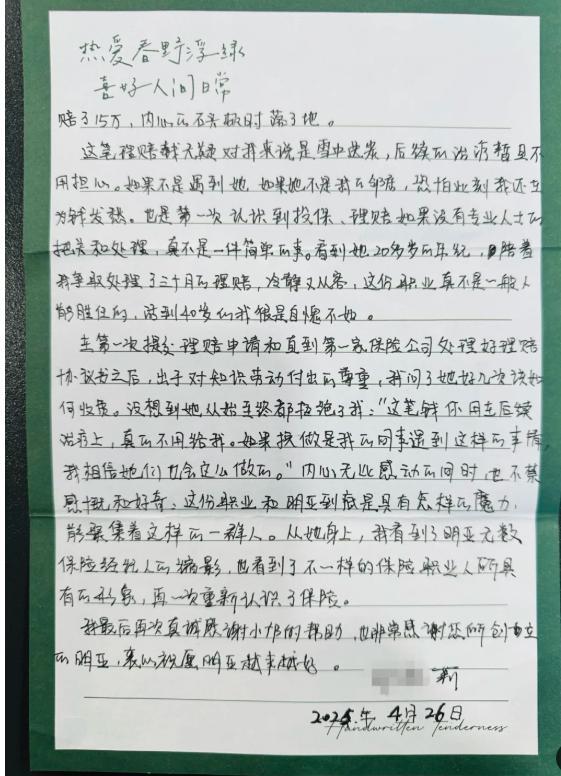 热爱春野浮绿
喜好人间日常
赔了15万，内心的石头极时落了地。
这笔理赔款无疑对我来说是雪中送炭，后续的治疗暂且不
用担心。如果不是遇到她，如果她不是我的邻居，恐怕此刻我还在
为钱发愁。也是第一次认识到投保、理赔如果没有专业人士的
把关和处理，真不是一件简单的事。看到她20多岁的年纪，陪着
我争取处理了三个月的理赔，冷静又从容，这份职业真不是一般人
能胜任的，活到40岁的我很是自愧不如。
在第一次提交理赔申请和直到第一家保险公司处理好理赔
协议书之后，出于对知识劳动付出的尊重，我问了她好几次该如
何收费。没想到她从始至终都拒绝了我："这笔钱你用在后续
治疗上，真的不用给我。如果换做是我的同事遇到这样的事情，
我相信她们也会这么做的。"内心无比感动的同时也不禁
感慨和好奇：这份职业和明亚到底是具有怎样的魔力，
能聚集着这样的一群人。从她身上，我看到了明亚无数
保险经纪人的缩影，也看到了不一样的保险职业人所具
有的形象，再一次重新认识了保险。
我最后再次真诚感谢小邬的帮助，也非常感谢您所创立
的明亚，衷心祝愿明亚越来越好。
莉
2025年4月26日
Handwritten Tenderness